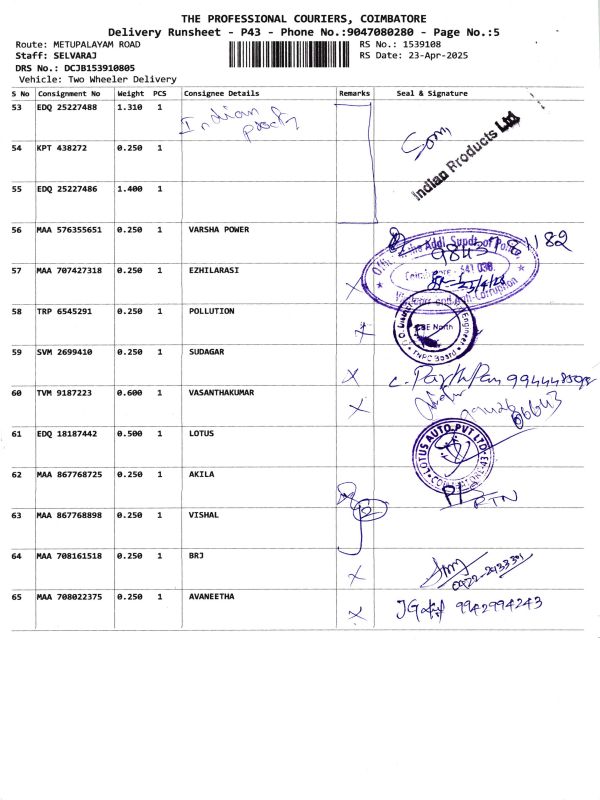 THE PROFESSIONAL COURIERS, COIMBATORE
Delivery Runsheet - P43 - Phone No.:9047080280 - Page No.:5
Route: METUPALAYAM ROAD RS No.: 1539108
Staff: SELVARAJ RS Date: 23-Apr-2025
DRS No.: DCJB153910805
Vehicle: Two Wheeler Delivery
S No Consignment No Weight PCS Consignee Details Remarks Seal & Signature
53 EDQ 25227488 1.310 1 Indian
54 KPT 438272 0.250 1
Indian Products Ltd
55 EDQ 25227486 1.400 1
56 MAA 576355651 0.250 1 VARSHA POWER
57 MAA 707427318 0.250 1 EZHILARASI X
58 TRP 6545291 0.250 1 POLLUTION X
CBE North
TNPC Board
59 SVM 2699410 0.250 1 SUDAGAR X
60 TVM 9187223 0.600 1 VASANTHAKUMAR X
61 EDQ 18187442 0.500 1 LOTUS
LOTUS AUTO PVT LTD
62 MAA 867768725 0.250 1 AKILA
RTN
63 MAA 867768898 0.250 1 VISHAL
64 MAA 708161518 0.250 1 BRJ X
65 MAA 708022375 0.250 1 AVANEETHA X 9942994243